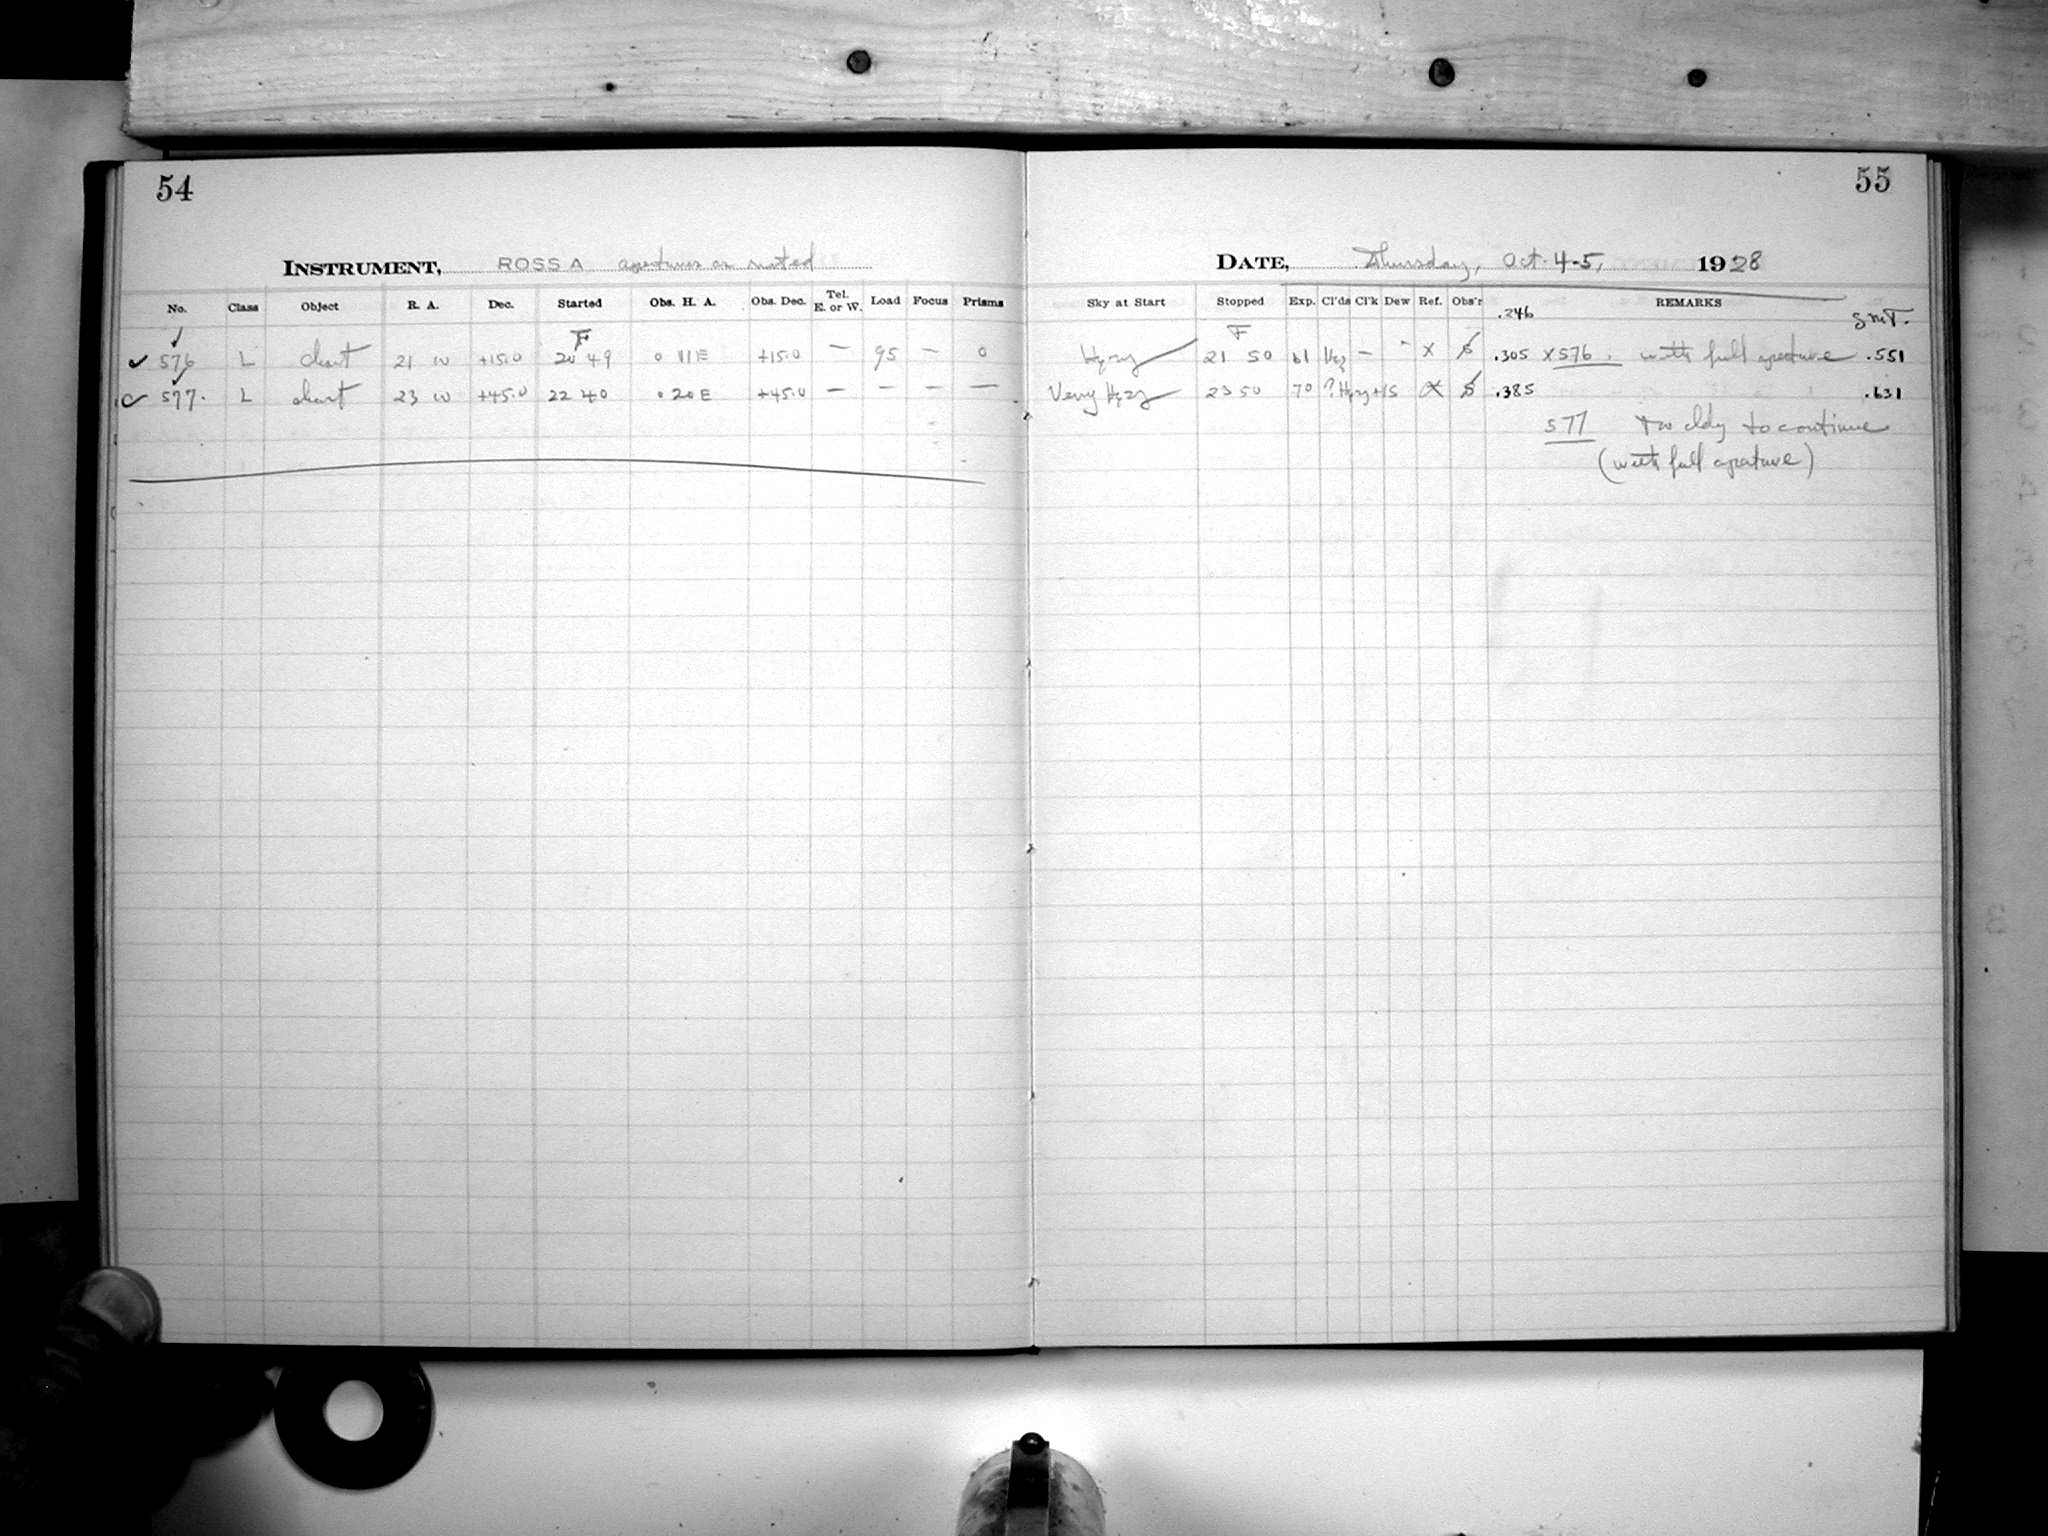 54
55
INSTRUMENT, ROSS A apertures as noted
DATE, Thursday, Oct. 4-5, 1928
No. Class Object R. A. Dec. Started Obs. H. A. Obs. Dec. Tel. E. or W. Load Focus Prisms
Sky at Start Stopped Exp. Cl'ds Cl'k Dew Ref. Obs'r .246 REMARKS
GMT.
F
F
✓ 576 L chart 21 10 +15.0 20 49 0 11 E +15.0 — 95 — 0
Hazy 21 50 61 — - X .305 X 576. with full aperature .551
✓ 577. L chart 23 10 +45.0 22 40 0 20 E +45.0 — — — —
Very Hazy 23 50 70 ? Hazy +15 X .385 .631
577 too cldy to continue
(with full aperature)